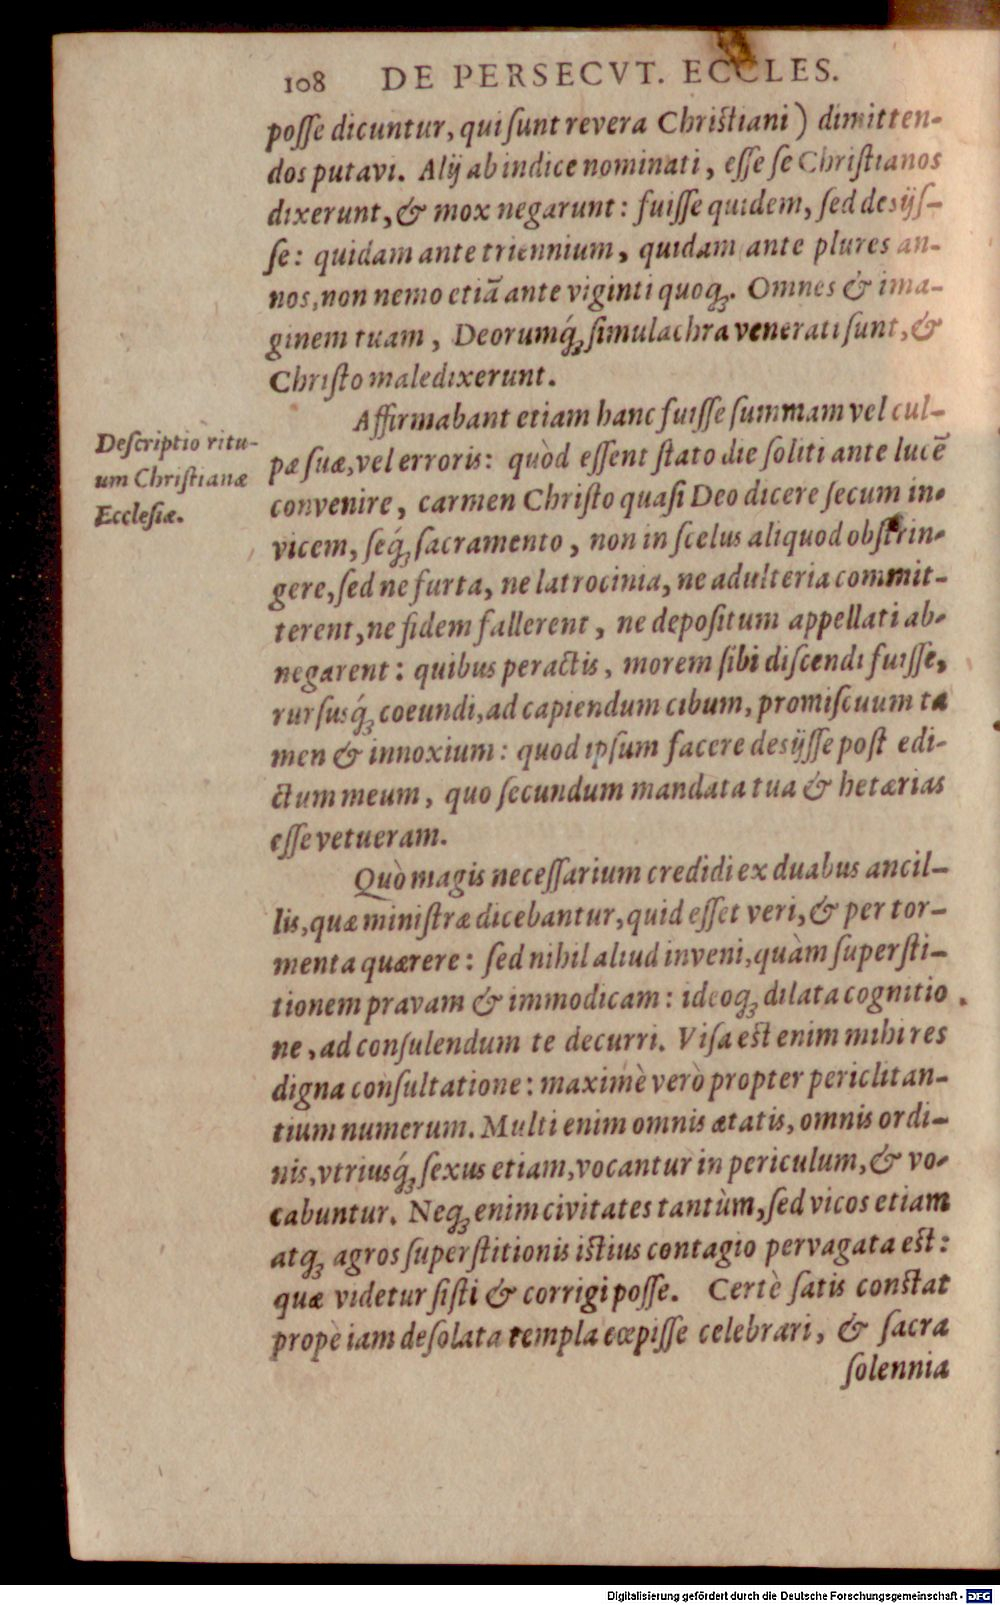 108 DE PERSECVT. ECCLES.
posse dicuntur, qui sunt revera Christiani) dimitten-
dos putavi. Alij ab indice nominati, esse se Christianos
dixerunt, & mox negarunt: fuisse quidem, sed desijs-
se: quidam ante triennium, quidam ante plures an-
nos, non nemo etiā ante viginti quoq́;. Omnes & ima-
ginem tuam, Deorumq́; simulachra venerati sunt, &
Christo maledixerunt.
Affirmabant etiam hanc fuisse summam vel cul-
Descriptio ritu-
um Christianæ
Ecclesiæ.
pæ suæ, vel erroris: quòd essent stato die soliti ante lucē
convenire, carmen Christo quasi Deo dicere secum in-
vicem, seq́; sacramento, non in scelus aliquod obstrin-
gere, sed ne furta, ne latrocinia, ne adulteria commit-
terent, ne fidem fallerent, ne depositum appellati ab-
negarent: quibus peractis, morem sibi discendi fuisse,
rursusq́; coeundi, ad capiendum cibum, promiscuum ta
men & innoxium: quod ipsum facere desijsse post edi-
ctum meum, quo secundum mandata tua & hetærias
esse vetueram.
Quò magis necessarium credidi ex duabus ancil-
lis, quæ ministræ dicebantur, quid esset veri, & per tor-
menta quærere: sed nihil aliud inveni, quàm supersti-
tionem pravam & immodicam: ideoq; dilata cognitio
ne, ad consulendum te decurri. Visa est enim mihi res
digna consultatione: maximè verò propter periclitan-
tium numerum. Multi enim omnis ætatis, omnis ordi-
nis, vtriusq́; sexus etiam, vocantur in periculum, & vo-
cabuntur. Neq; enim civitates tantùm, sed vicos etiam
atq; agros superstitionis istius contagio pervagata est:
quæ videtur sisti & corrigi posse. Certè satis constat
propè iam desolata templa cœpisse celebrari, & sacra
solennia
Digitalisierung gefördert durch die Deutsche Forschungsgemeinschaft - DFG